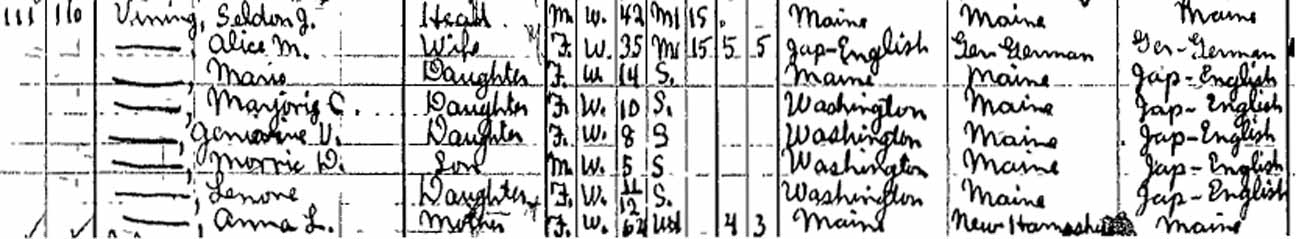 111 110 Vining, Seldon J. Head M. W. 42 M1 15 Maine Maine Maine
——, Alice M. Wife F. W. 35 M1 15 5 5 Jap-English Ger-German Ger-German
——, Marie Daughter F. W. 14 S. Maine Maine Jap-English
——, Marjorie C. Daughter F. W. 10 S. Washington Maine Jap-English
——, Genevieve V. Daughter F. W. 8 S Washington Maine Jap-English
——, Morric D. Son M. W. 5 S Washington Maine Jap-English
——, Lenore Daughter F. W. 11/12 S. Washington Maine Jap-English
——, Anna L. Mother F. W. 4 3 Maine New Hampshire Maine